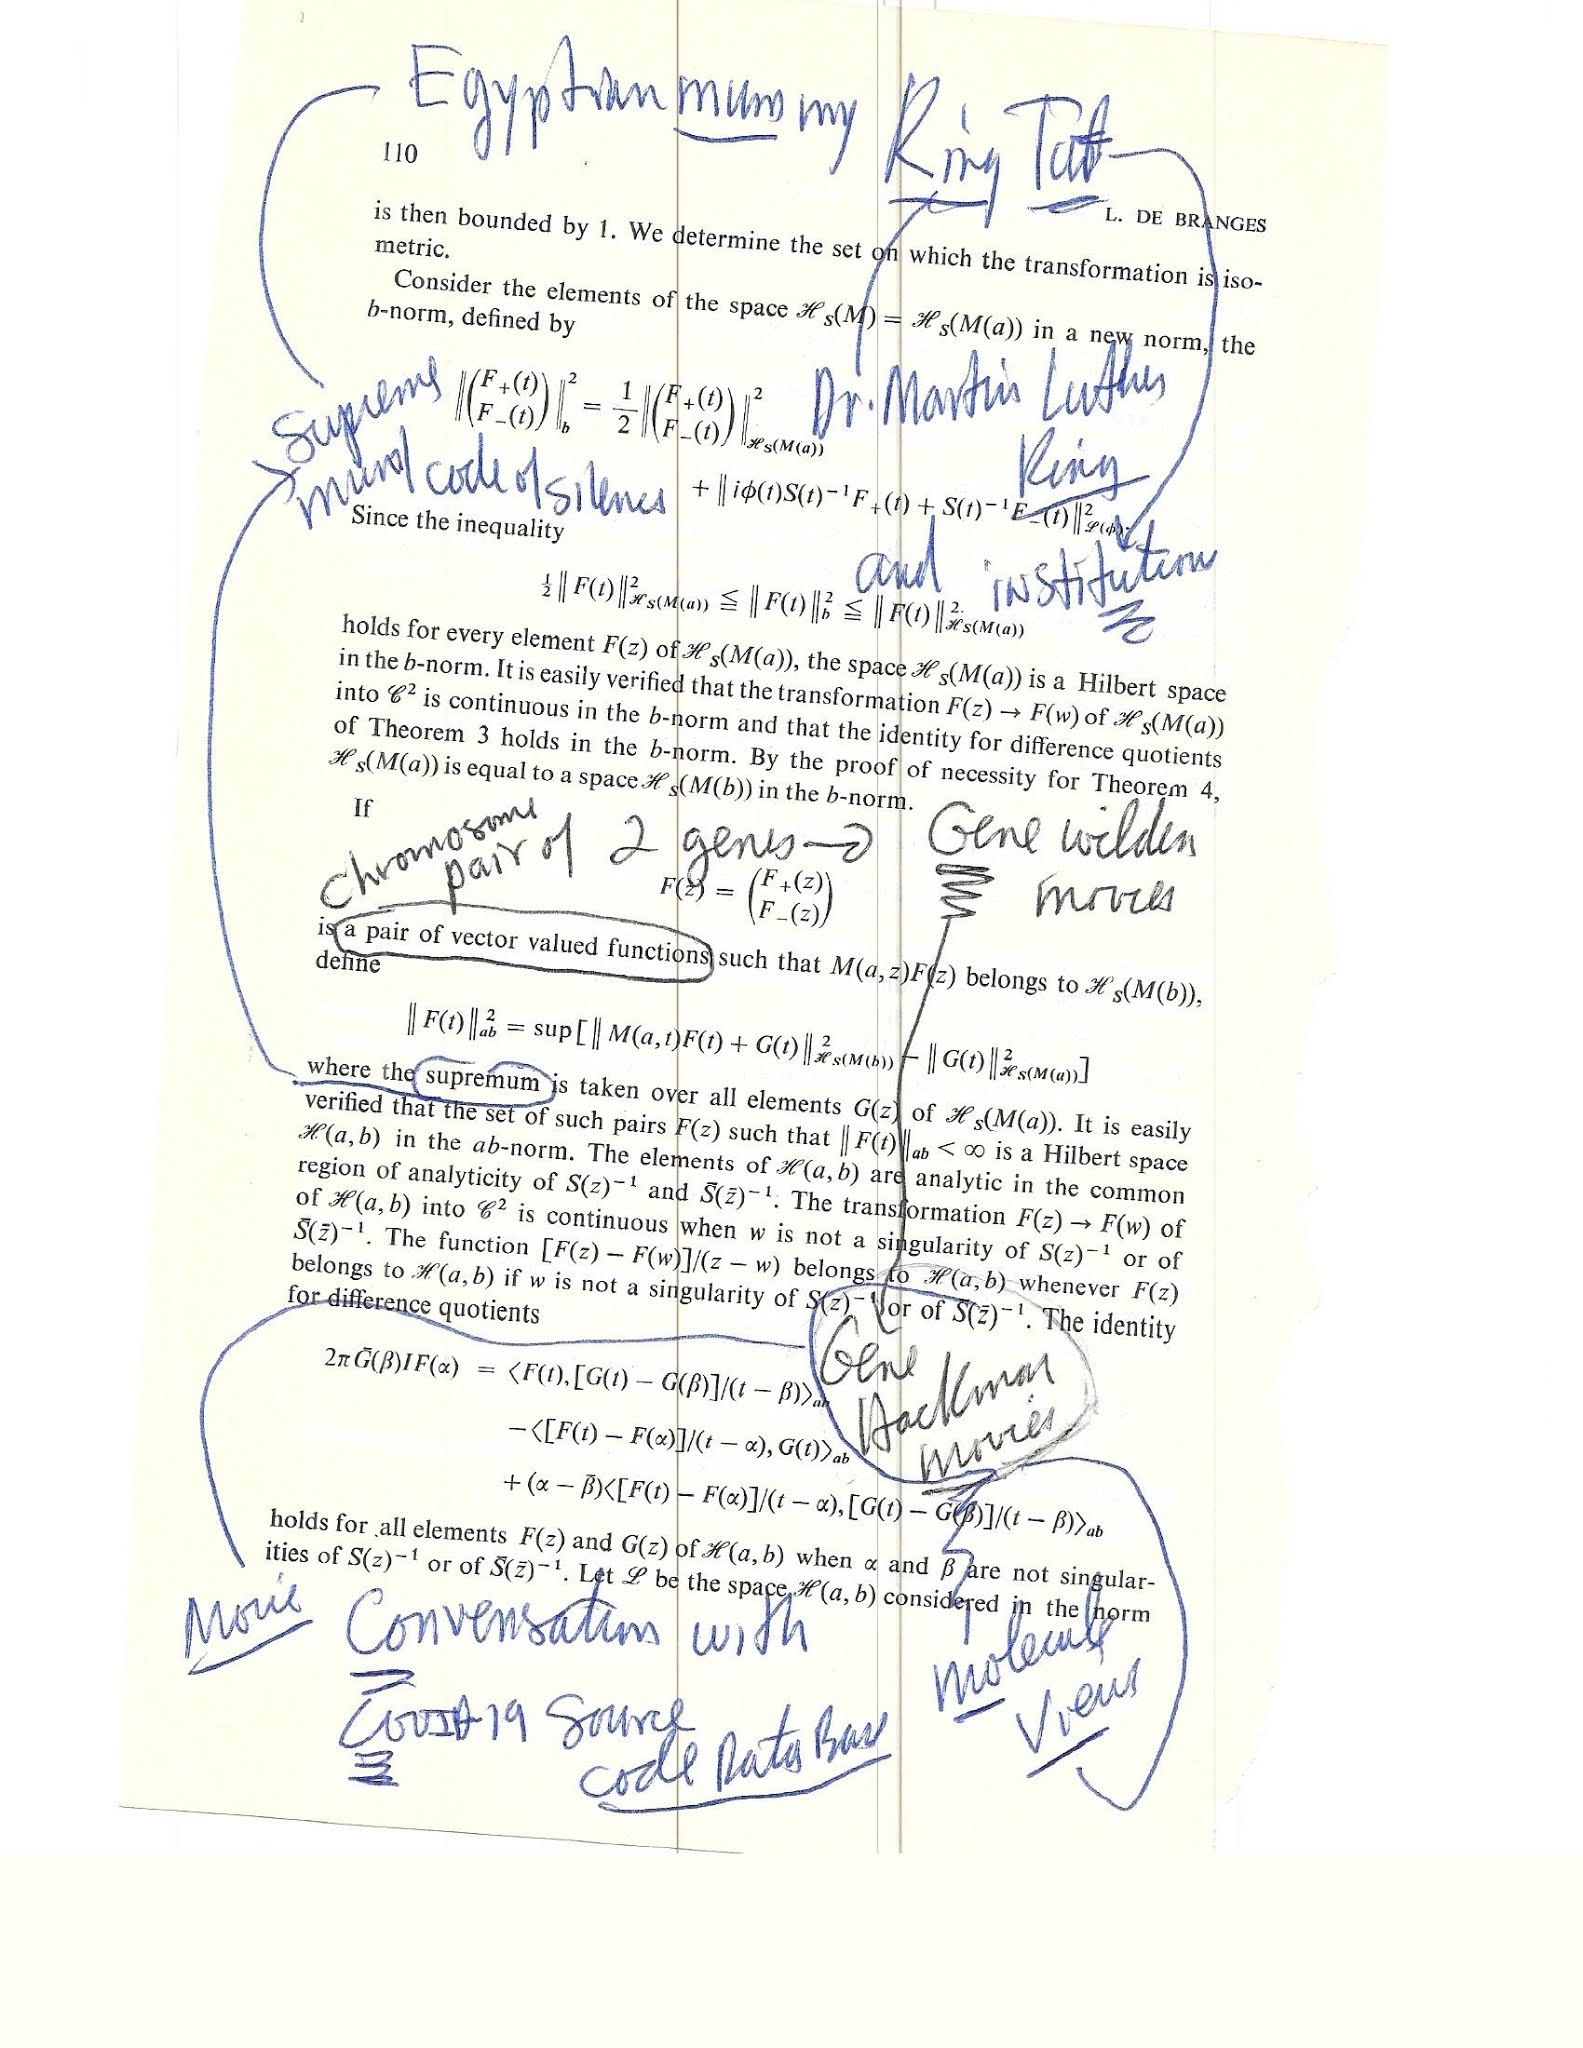 Egyptian mummy King Tut
110
L. DE BRANGES
is then bounded by 1. We determine the set on which the transformation is iso-
metric.
Consider the elements of the space ℋ_S(M) = ℋ_S(M(a)) in a new norm, the
b-norm, defined by
Supreme
‖(F₊(t) F₋(t))‖²_b = 1/2 ‖(F₊(t) F₋(t))‖²_ℋ_S(M(a))
Dr. Martin Luther
King
code of silence
+ ‖iϕ(t)S(t)⁻¹F₊(t) + S(t)⁻¹F₋(t)‖²_ℒ(ϕ).
Since the inequality
and institution
½‖F(t)‖²_ℋ_S(M(a)) ≦ ‖F(t)‖²_b ≦ ‖F(t)‖²_ℋ_S(M(a))
holds for every element F(z) of ℋ_S(M(a)), the space ℋ_S(M(a)) is a Hilbert space
in the b-norm. It is easily verified that the transformation F(z) → F(w) of ℋ_S(M(a))
into 𝒞² is continuous in the b-norm and that the identity for difference quotients
of Theorem 3 holds in the b-norm. By the proof of necessity for Theorem 4,
ℋ_S(M(a)) is equal to a space ℋ_S(M(b)) in the b-norm.
If
Chromosome
pair of 2 genes → Gene wilden
movies
F(z) = (F₊(z) F₋(z))
is a pair of vector valued functions such that M(a, z)F(z) belongs to ℋ_S(M(b)),
define
‖F(t)‖²_ab = sup[‖M(a,t)F(t) + G(t)‖²_ℋ_S(M(b)) − ‖G(t)‖²_ℋ_S(M(a))]
where the supremum is taken over all elements G(z) of ℋ_S(M(a)). It is easily
verified that the set of such pairs F(z) such that ‖F(t)‖_ab < ∞ is a Hilbert space
ℋ(a, b) in the ab-norm. The elements of ℋ(a, b) are analytic in the common
region of analyticity of S(z)⁻¹ and S̄(z̄)⁻¹. The transformation F(z) → F(w) of
of ℋ(a, b) into 𝒞² is continuous when w is not a singularity of S(z)⁻¹ or of
S̄(z̄)⁻¹. The function [F(z) − F(w)]/(z − w) belongs to ℋ(a, b) whenever F(z)
belongs to ℋ(a, b) if w is not a singularity of S(z)⁻¹ or of S̄(z̄)⁻¹. The identity
for difference quotients
Gene
Hackman
movies
2πḠ(β)IF(α) = ⟨F(t), [G(t) − G(β)]/(t − β)⟩_ab
−⟨[F(t) − F(α)]/(t − α), G(t)⟩_ab
+ (α − β̄)⟨[F(t) − F(α)]/(t − α), [G(t) − G(β)]/(t − β)⟩_ab
holds for all elements F(z) and G(z) of ℋ(a, b) when α and β are not singular-
ities of S(z)⁻¹ or of S̄(z̄)⁻¹. Let ℒ be the space ℋ(a, b) considered in the norm
Movie Conversation with
molecule
COVID-19 Source
code Data Base